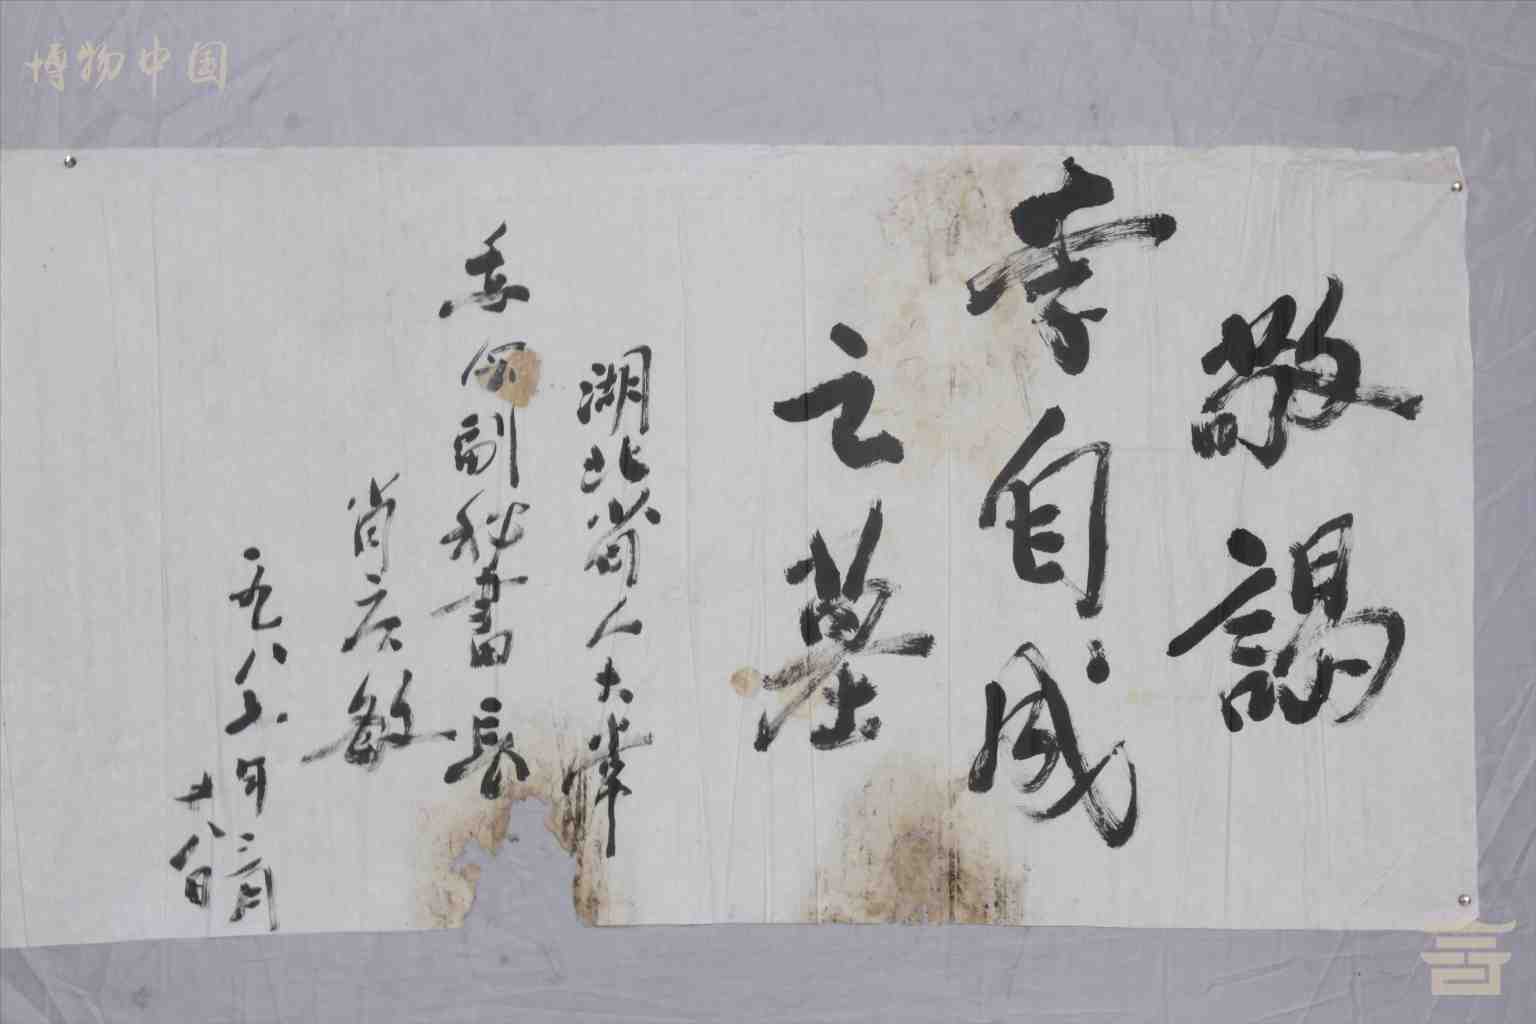 敬謁
李自成
之墓
湖北省人大常
委会副秘書長
肖庆敏
一九八五年三月
十八日
博物中国